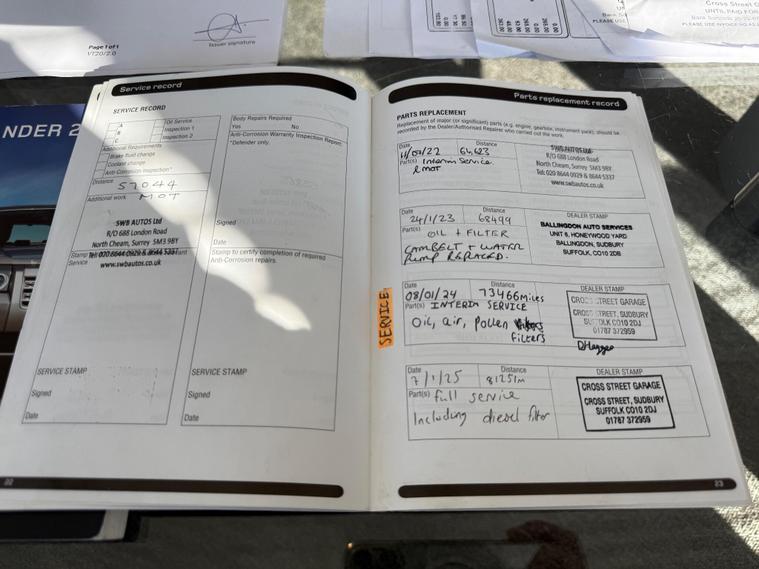 Page 1 of 1
VT20/2.0
Issuer signature
Cross Street G
UNTIL PAID FOR
NDER 2
Service record
SERVICE RECORD
A
B
C
Oil Service
Inspection 1
Inspection 2
Additional Requirements
Brake fluid change
Coolant change
Anti-Corrosion inspection*
Distance
57044
Additional work MOT
SWB AUTOS Ltd
R/O 688 London Road
North Cheam, Surrey SM3 9BY
Tel: 020 8644 0929 & 8644 5337
www.swbautos.co.uk
Stamp
Service
SERVICE STAMP
Signed
Date
Body Repairs Required
Yes No
Anti-Corrosion Warranty Inspection Report.
*Defender only.
Signed
Date
Stamp to certify completion of required
Anti-Corrosion repairs.
SERVICE STAMP
Signed
Date
22
Parts replacement record
PARTS REPLACEMENT
Replacement of major (or significant) parts (e.g. engine, gearbox, instrument pack), should be
recorded by the Dealer/Authorised Repairer who carried out the work.
Date Distance
64,623
Part(s) Interim Service
& MOT
SWB AUTOS Ltd
R/O 688 London Road
North Cheam, Surrey SM3 9BY
Tel: 020 8644 0929 & 8644 5337
www.swbautos.co.uk
Date Distance
24/1/23 68499
Part(s) OIL + FILTER
CAMBELT + WATER
PUMP REPLACED.
DEALER STAMP
BALLINGDON AUTO SERVICES
UNIT 6, HONEYWOOD YARD
BALLINGDON, SUDBURY
SUFFOLK, CO10 2DB
SERVICE
Date Distance
08/01/24 73466 miles
Part(s) INTERIM SERVICE
Oil, air, Pollen
Filters
DEALER STAMP
CROSS STREET GARAGE
CROSS STREET, SUDBURY
SUFFOLK CO10 2DJ
01787 372959
Date Distance
7/1/25 81251m
Part(s) full service
Including diesel filter
DEALER STAMP
CROSS STREET GARAGE
CROSS STREET, SUDBURY
SUFFOLK CO10 2DJ
01787 372959
23